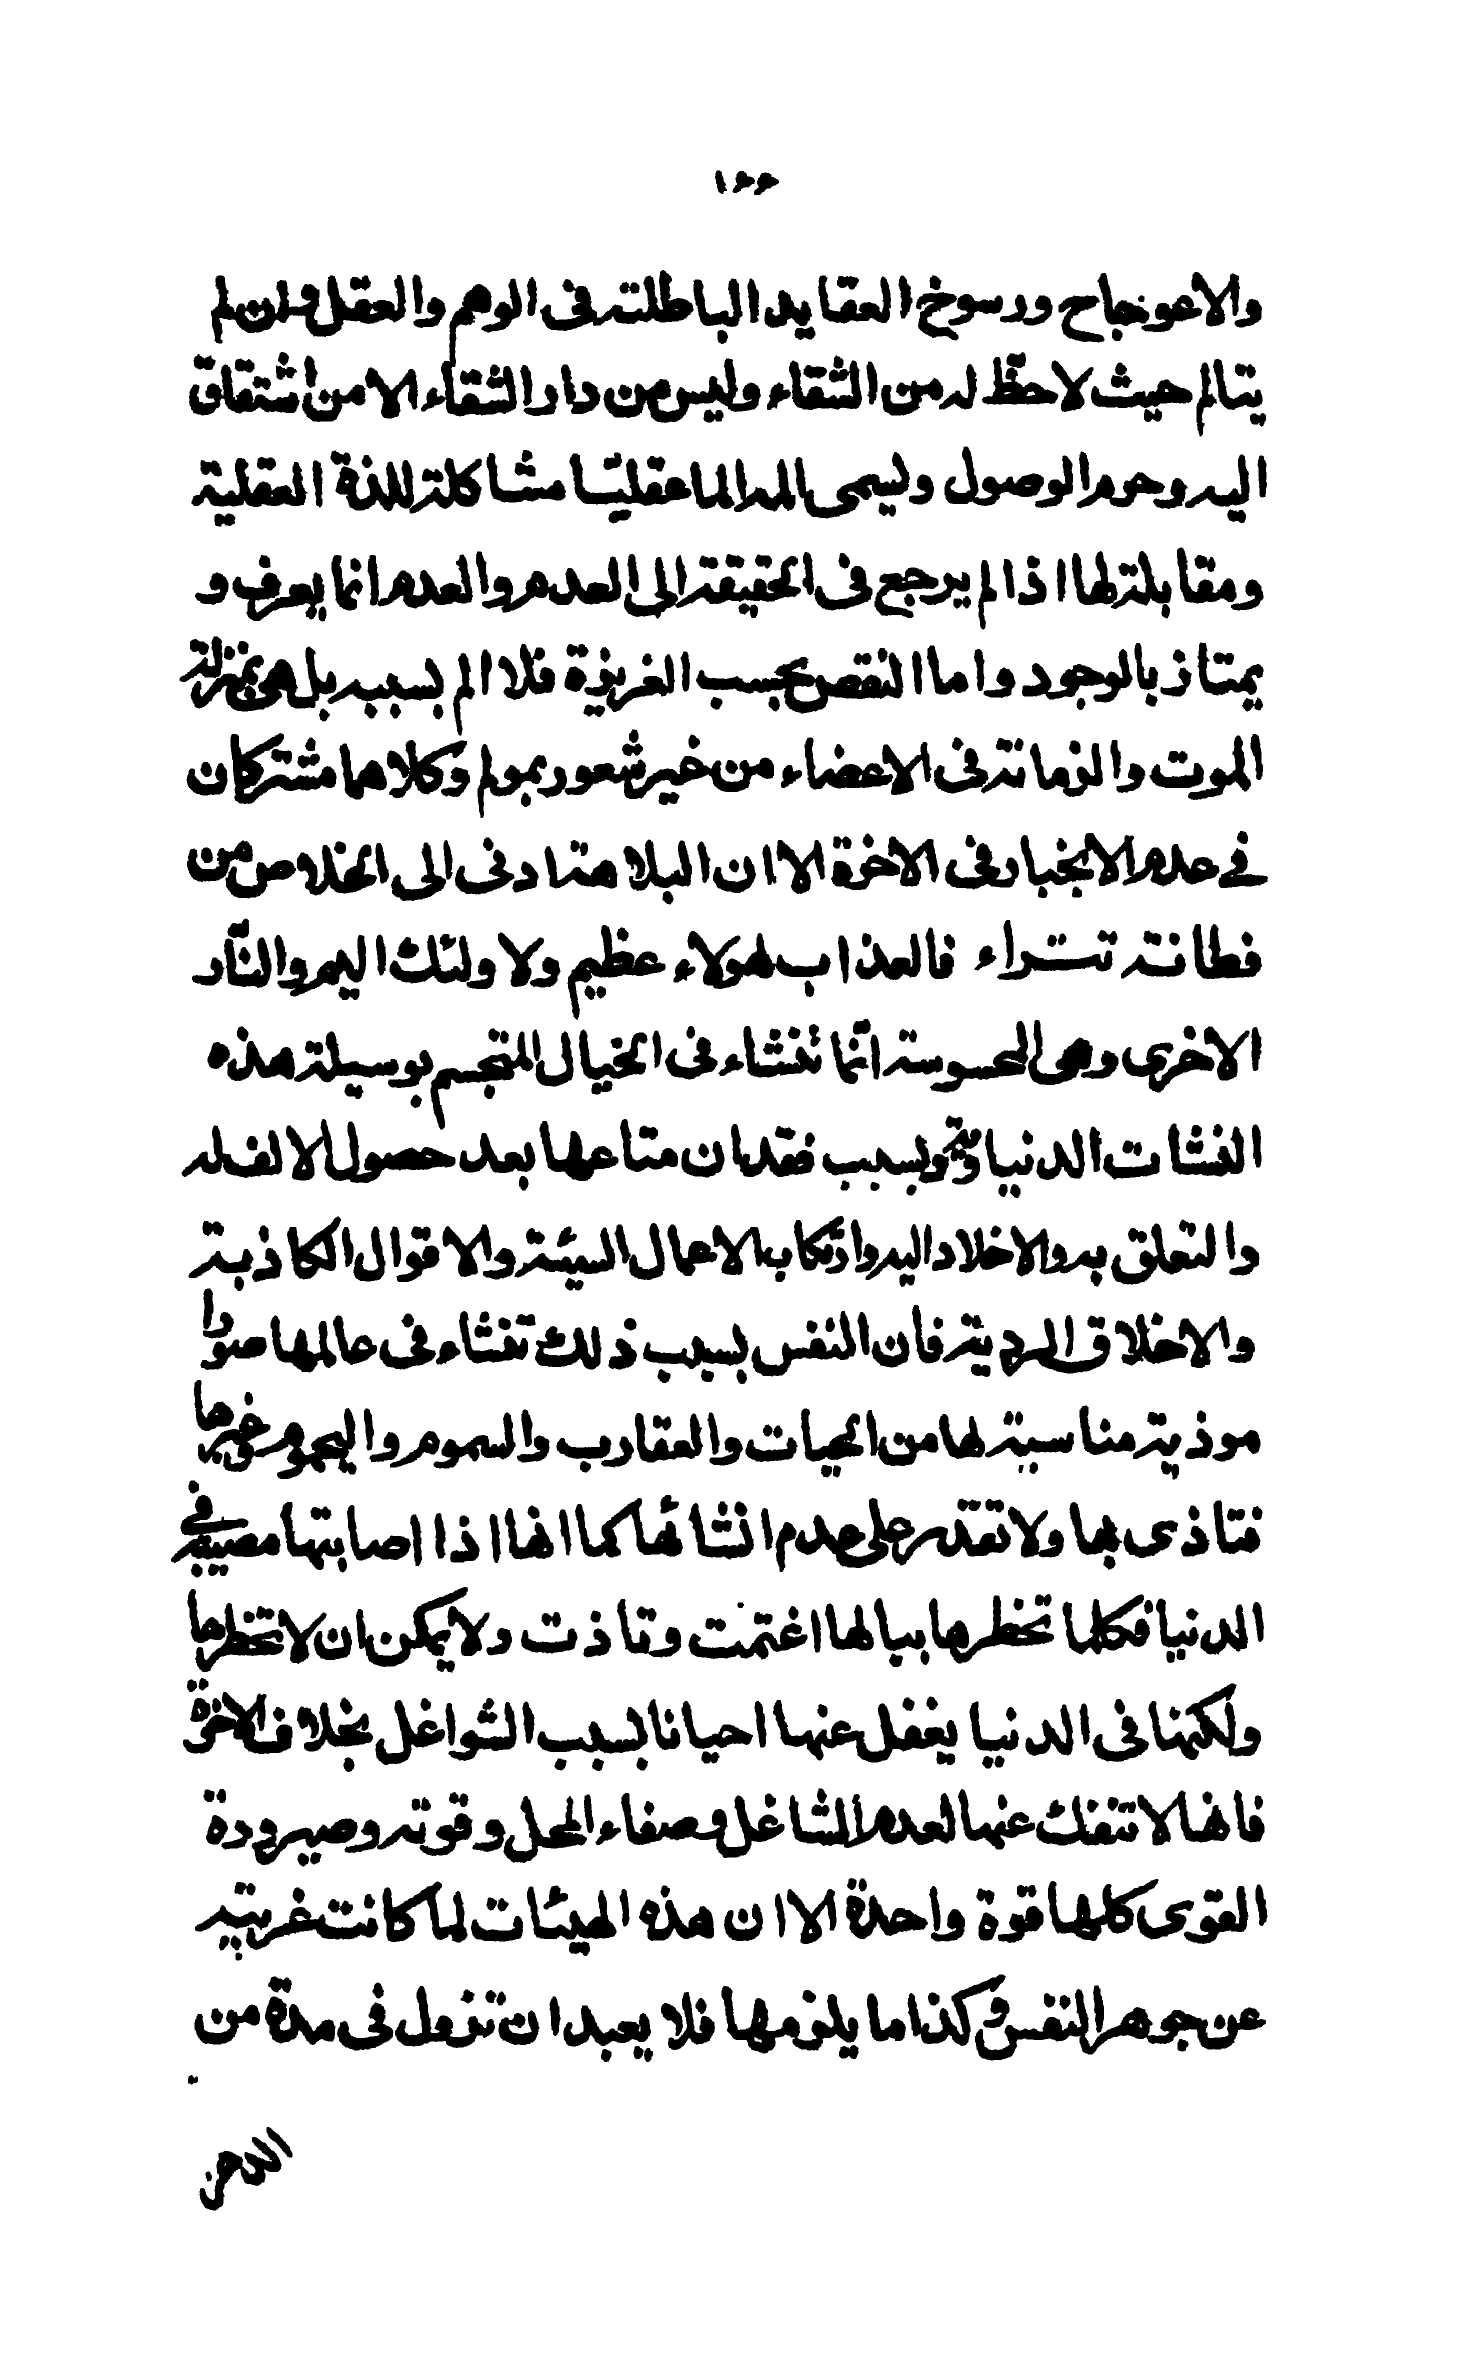 ١٦٦
والاعوجاج ورسوخ العقايد الباطلة فى الوهم والعقل وان لم
يتالم حيث لاحظّ له من الشقاء وليس من دار الشقاء الا من اشتقاق
اليه وحرم الوصول وليسمى المه الما عقليّا مشاكلة للذة العقلية
ومقابلة لها اذا لم يرجع فى الحقيقة الى العدم والعدم انما يعرف و
يمتاز بالوجود واما النقص بحسب الغريزة فلا الم بسببه بل هى بمنزلة
الموت والزمانة فى الاعضاء من غير شعور بمولم وكلاهما مشتركان
في عدم الانجبار فى الاخرة الا ان البلاهة ادنى الى الخلاص من
فطانة تتراء فالعذاب لهولاء عظيم ولاولئك اليم والنّار
الاخرى وهى المحسوسة انّما تنشاء فى الخيال المتجسم بوسيلة هذه
النشات الدنياوية وبسبب فقدان متاعها بعد حصول الالف له
والتعلق به والاخلاد اليه وارتكاب الاعمال السيئة والاقوال الكاذبة
والاخلاق الردية فان النفس بسبب ذلك تنشاء فى عالمها صورا
موذية مناسبة لها من الحيات والعقارب والسموم واليحموم وغيرها
فتاذى بها ولا تقدر على عدم انشائها كما انها اذا اصابتها مصيبة في
الدنيا فكلما تخطرها ببالها اغتمت وتاذت ولا يمكن ان لا تخطرها
ولكنها فى الدنيا يغفل عنها احيانا بسبب الشواغل بخلاف الاخرة
فانها لا تنفك عنها لعدم المشاغل وصفاء المحل وقوته وصيرورة
القوى كلها قوة واحدة الا ان هذه الهيئات لما كانت غريبة
عن جوهر النفس وكذا ما يلزمها فلا يعبد ان تزول فى مدة من
الدهر